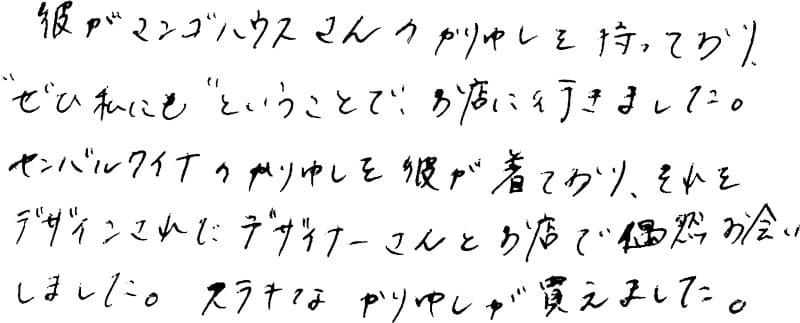 彼がマンゴハウスさんのかりゆしを持っており、
"ぜひ私にも"ということで、お店に行きました。
センバルワイナのかりゆしを彼が着ており、それを
デザインされたデザイナーさんとお店で偶然お会い
しました。ステキなかりゆしが買えました。